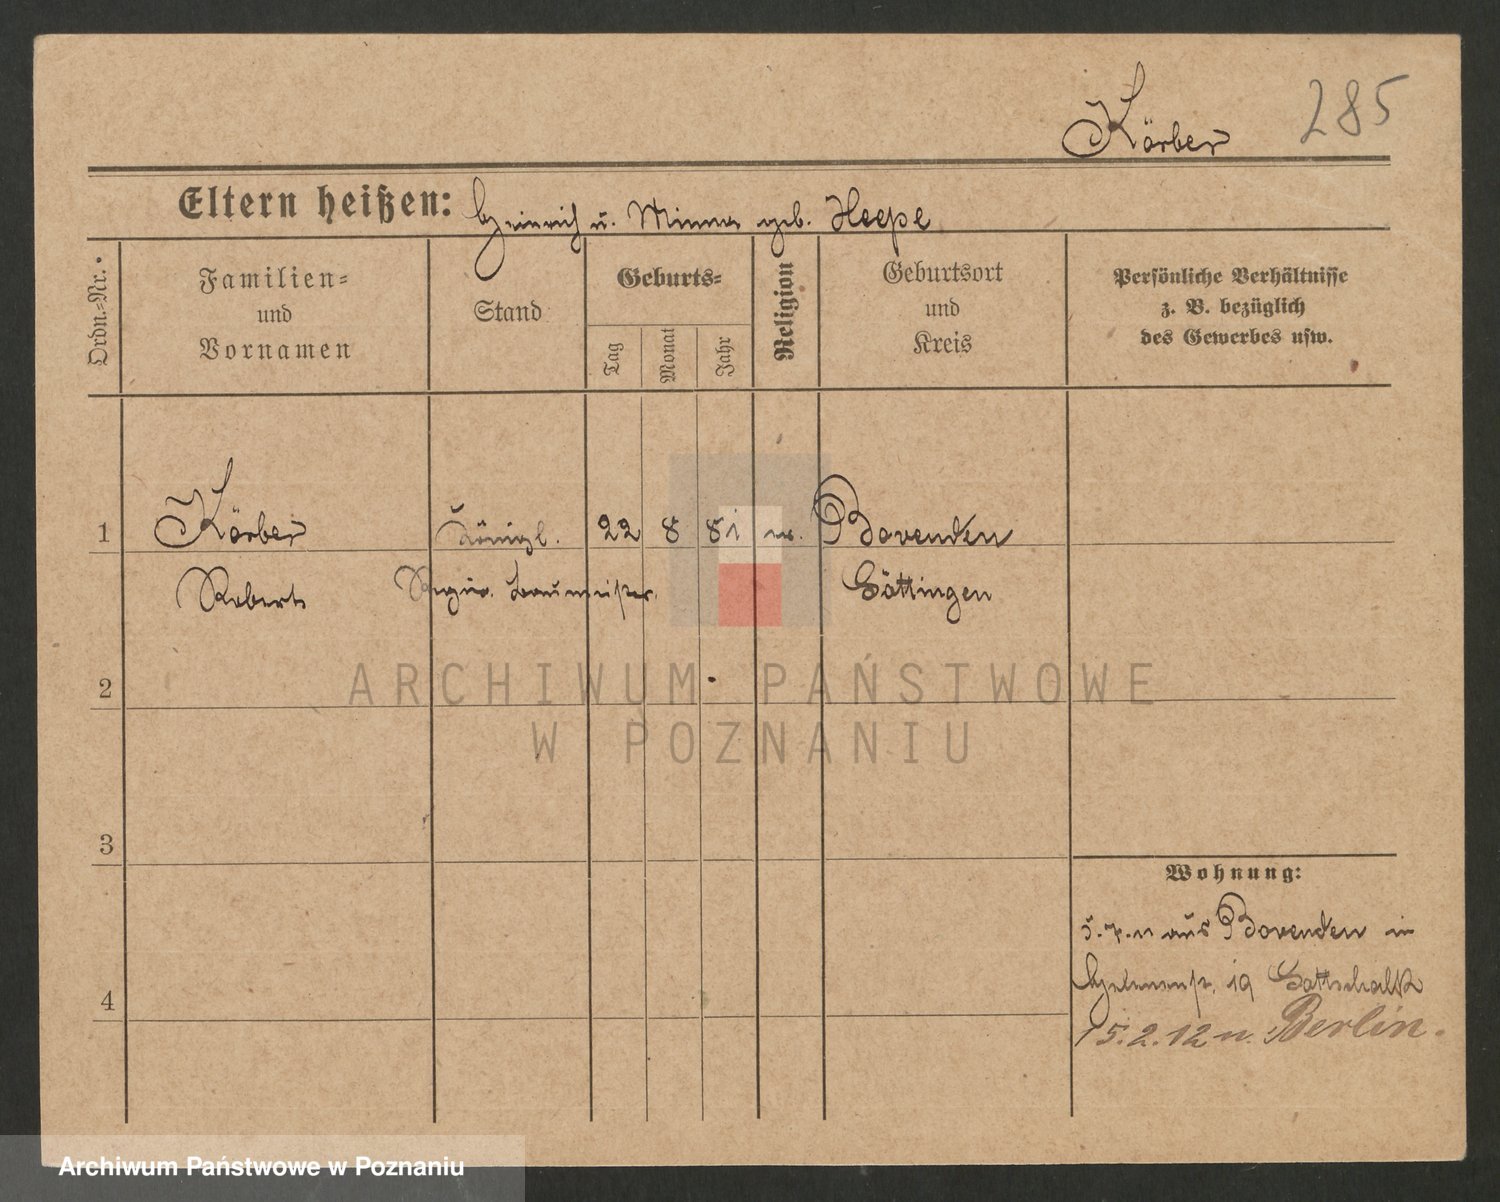 285
Körber
Eltern heißen: Heinrich u. Minna geb. Heepe
Ordn.-Nr.
Familien-
und
Vornamen
Stand
Geburts-
Tag
Monat
Jahr
Religion
Geburtsort
und
Kreis
Persönliche Verhältnisse
z. B. bezüglich
des Gewerbes usw.
1 Körber Königl. 22 8 81 Bovenden
Robert Regier. baumeister. Göttingen
2
ARCHIWUM PAŃSTWOWE
W POZNANIU
3
Wohnung:
5.7.11 aus Bovenden in
19 Gottschalk
4
15.2.12 n. Berlin.
Archiwum Państwowe w Poznaniu